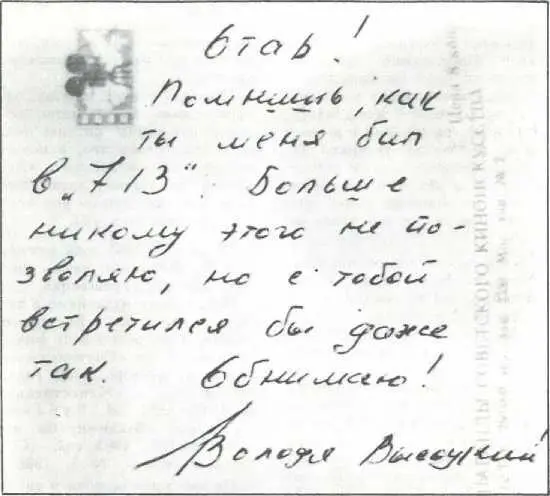 Отар!
Помнишь, как
ты меня бил
в „713“. Больше
никому этого не по-
зволяю, но с тобой
встретился бы даже
так. Обнимаю!
Володя Высоцкий
СОВЕТСКОГО КИНОИСКУССТВА